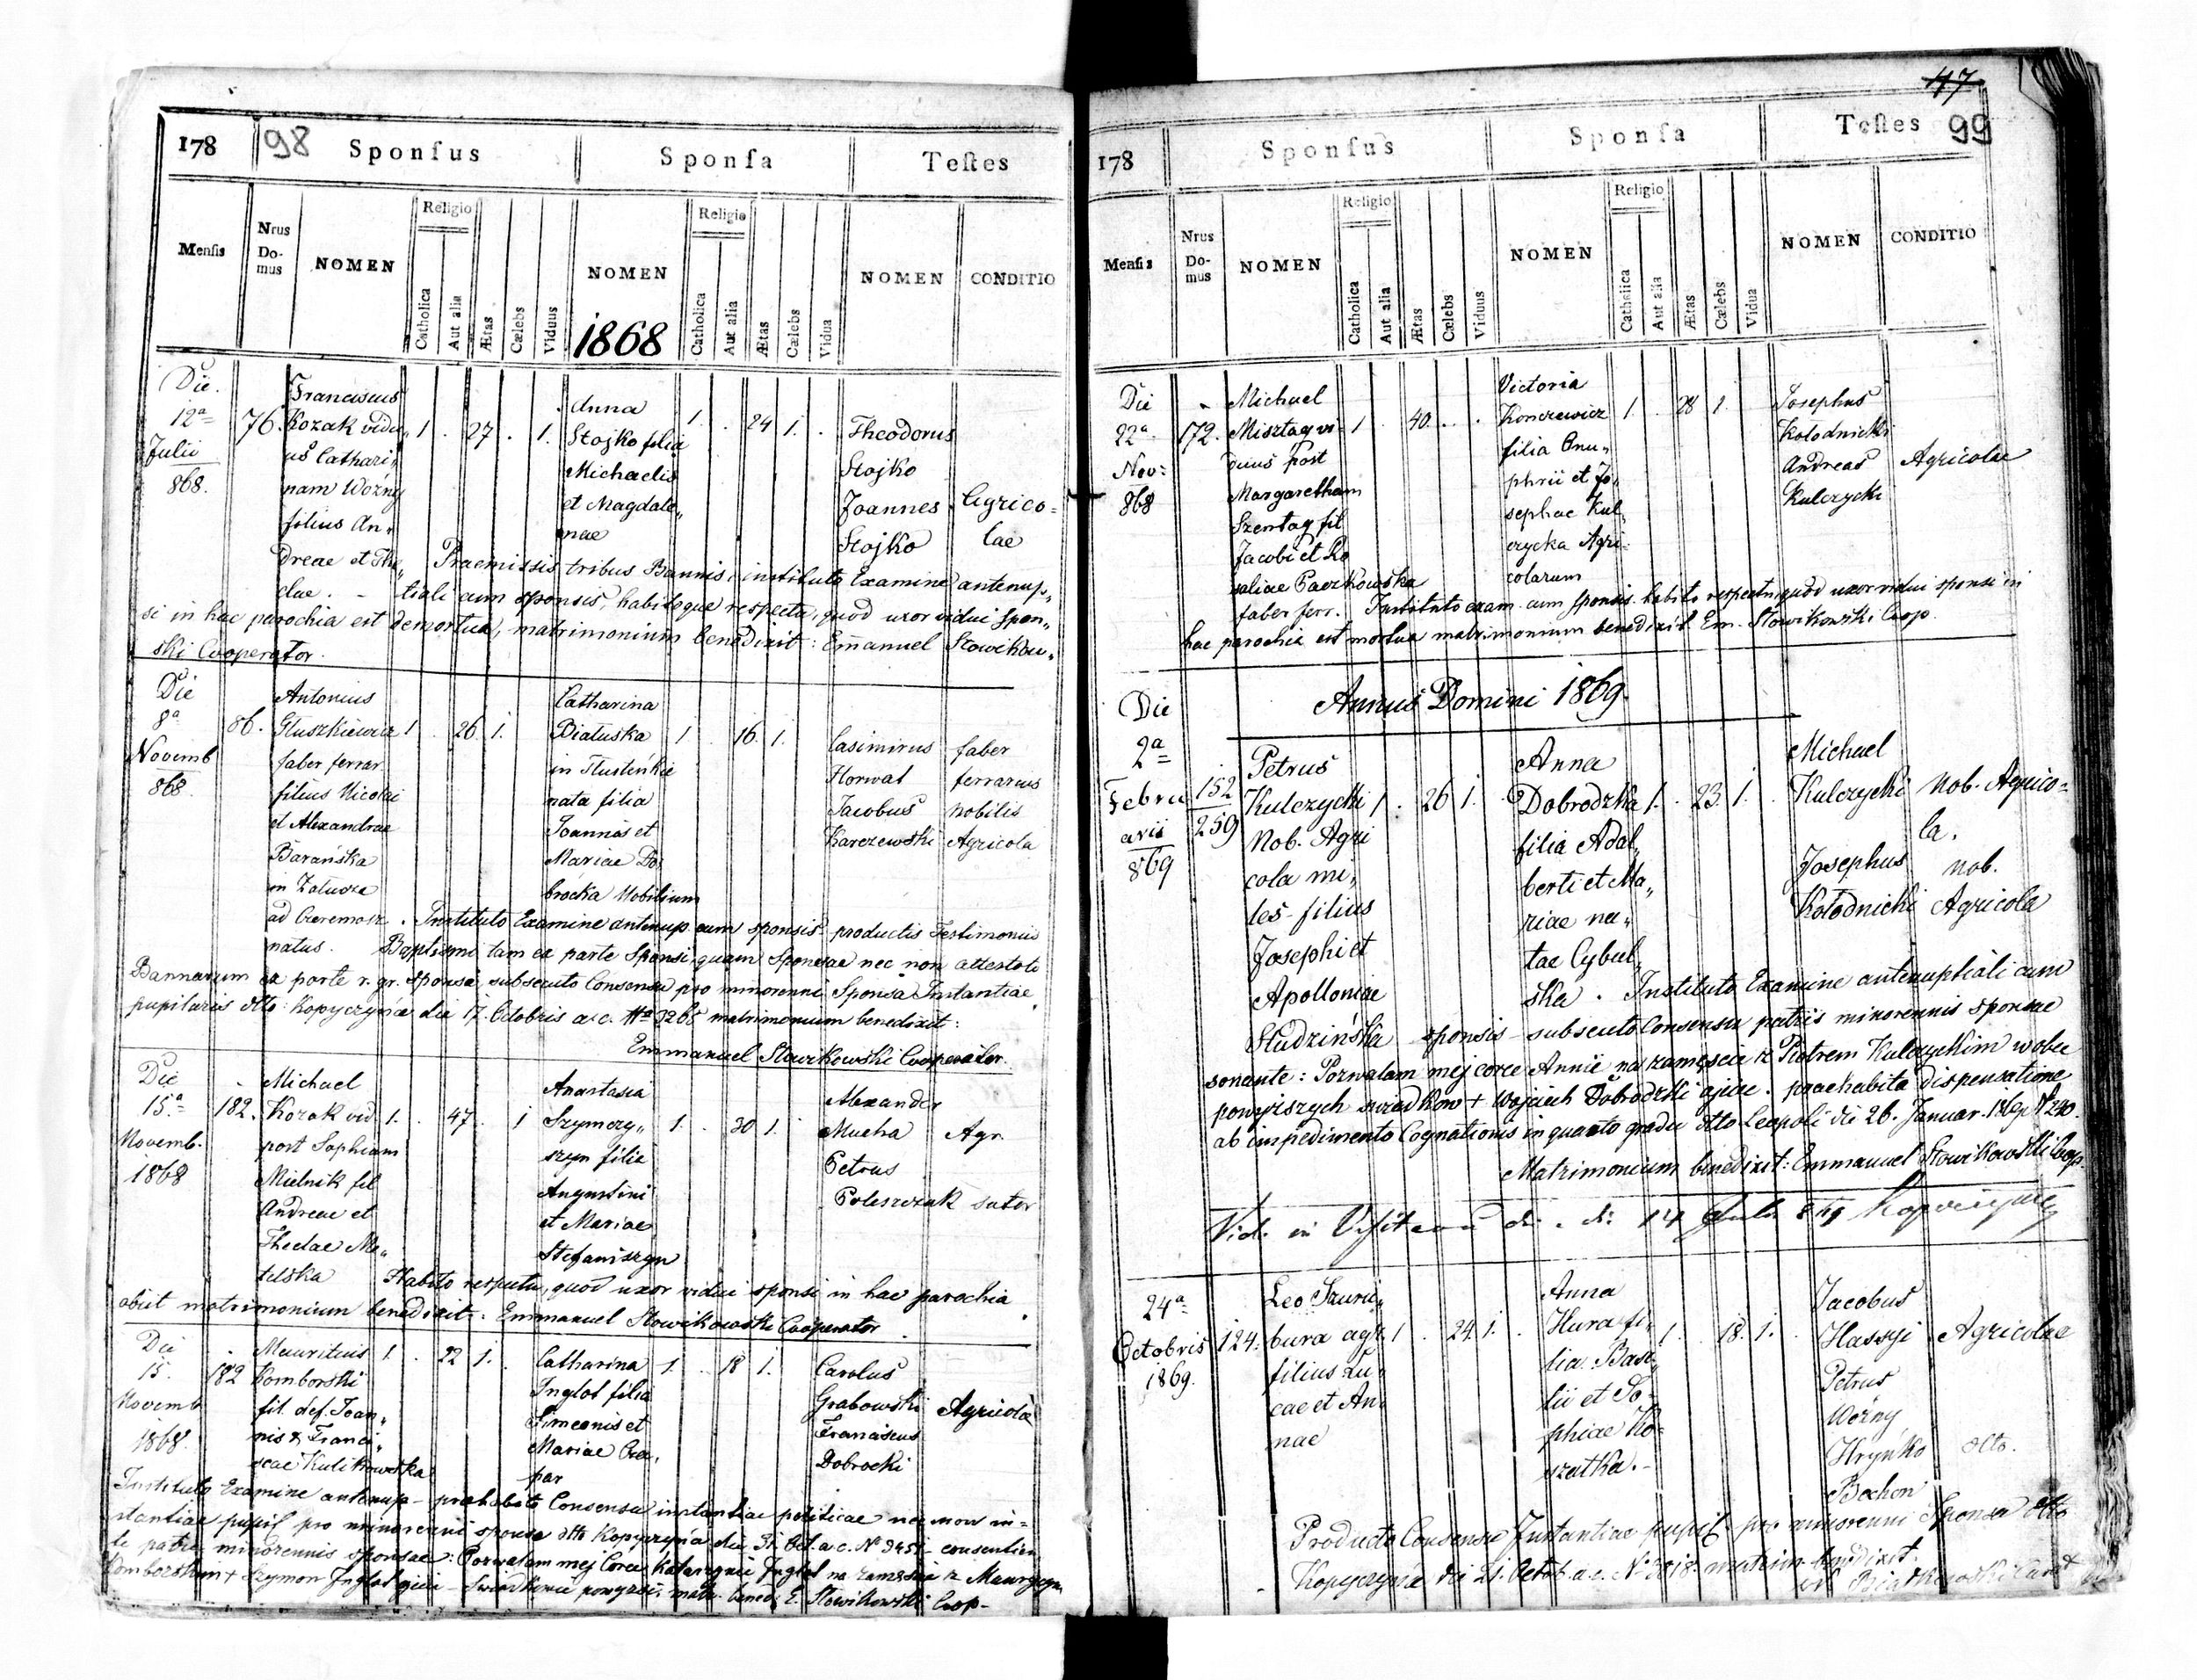 178 98 Sponsus Sponsa Testes
Mensis Nrus Domus NOMEN Religio Catholica Aut alia Ætas Cælebs Viduus NOMEN Religio Catholica Aut alia Ætas Cælebs Vidua NOMEN CONDITIO
1868
Die
12ª
Julii
868.
76.
Franciscus
Kozak vidu„
us Cathari„
nam Woźny
filius An„
dreae et The„
clae.
1 . 27 . 1.
Anna
Stojko filia
Michaelis
et Magdale„
nae
1. . 24 1. .
Theodorus
Stojko
Joannes
Stojko
Agrico=
lae
Praemissis tribus Bannis, instituto Examine antenup„
tiali cum sponsis, habitoque respectu, quod uxor vidui spon„
si in hac parochia est demortua, matrimonium benedixit: Emanuel Słowikow„
ski Cooperator.
Die
8ª
Novemb
868
86.
Antonius
Głuszkiewicz
faber ferrar
filius Nicolai
et Alexandrae
Barańska
in Załucze
ad Czeremosz
natus.
1 . 26 1.
Catharina
Białuska
in Tłusteńkie
nata filia
Joannis et
Mariae Do„
brocka Nobilium
1 . 16. 1.
Casimirus
Horwat
Jacobus
Karczewski
faber
ferrarius
nobilis
Agricola
Instituto Examine antenup. cum sponsis productis Testimoniis
Baptismi tam ex parte Sponsi quam Sponsae nec non attestato
Bannorum ex parte r. gr. sponsi, subsecuto Consensu pro minorenni Sponsa Instantiae
pupilaris dtto: Kopyczyńce die 17. Octobris a.c. Nº 3268 matrimonium benedixit:
Emmanuel Słowikowski Cooperator.
Die
15.ª
Novemb.
1868
182.
Michael
Kozak vid
post Sophiam
Mielnik fil
Andreae et
Theclae Me„
telska
1. . 47 . 1
Anastasia
Szymczy„
szyn filia
Augustini
et Mariae
Stefaniszyn
1. . 30 1.
Alexander
Mucha
Petrus
Poleszczak
Agr.
sutor
Habito respectu, quod uxor vidui sponsi in hac parochia
obiit matrimonium benedixit: Emmanuel Słowikowski Cooperator
Die
15.
Novemb
1868.
182
Mauritius
Komborski
fil. def. Joan„
nis & Franci„
scae Kulikowska
1. . 22 1.
Catharina
Inglot filia
Simeonis et
Mariae Cza„
par
1. . 18 1.
Carolus
Grabowski
Franciscus
Dobrocki
Agricolae
Instituto Examine antenup– praehabito Consensu instantiae politicae nec non in=
stantiae pupil pro minorenni sponsa dtto Kopyczyńce die 31. Oct. a.c. Nº 3451– consentien
te patre minorennis sponsae: Pozwalam mej Corce Katarzynie Inglot na zamęście z Maurycym
Komborskim + Szymon Inglot ojciec – Świadkowie powyżsi; matr. bened. E. Słowikowski Coop–
178 Sponsus Sponsa Testes 99
47
Mensis Nrus Domus NOMEN Religio Catholica Aut alia Ætas Cælebs Viduus NOMEN Religio Catholica Aut alia Ætas Cælebs Vidua NOMEN CONDITIO
Die
22ª.
Nov:
868
172.
Michael
Misztag vi„
duus post
Margaretham
Szentag fil
Jacobi et Ro
saliae Paczkowska
faber ferr.
1 . 40. . .
Victoria
Konczewicz
filia Onu„
phrii et Jo„
sephae Kul„
czycka Agri=
colarum
1. . 28 1.
Josephus
Kołodnicki
Andreas
Kulczycki
Agricolae
Instituto exam. cum sponsis habito respectu, quod uxor vidui sponsi in
hac parochia est mortua matrimonium benedixit Em. Słowikowski Coop.
Annus Domini 1869.
Die
2ª
Febru
arii
869
152
259
Petrus
Kulczycki
Nob. Agri
cola mi„
les–filius
Josephi et
Apolloniae
Studzińska
1 . 26 1.
Anna
Dobrodzka
filia Adal„
berti et Ma„
riae na„
tae Cybul„
ska.
1. . 23. 1.
Michael
Kulczycki
Josephus
Kołodnicki
Nob. Agrico=
la.
nob.
Agricola
Instituto Examine antenuptiali cum
sponsis – subsecuto Consensu patris minorennis sponsae
sonante: Pozwalam mej corce Annie na zamęscie z Piotrem Kulczyckim wobec
powyższych swiadkow + Wojciech Dobrodzki ojciec. praehabita dispensatione
ab impedimento Cognationis in quarto gradu dtto Leopoli die 26. Januar.
Matrimonium benedixit: Emmanuel Słowikowski Coop.
24ª
Octobris
1869.
124.
Leo
bura agr.
filius Lu„
cae et An„
nae
1 . 24. 1.
Anna
Hura fi„
lia Basi„
lii et So=
phiae Ko=
szatka.–
1. . 18. 1.
Jacobus
Petrus
Woźny
Hryńko
Bochon
Agricolae
dtto.
Producto Consensu Instantiae pupil– pro minorenni Sponsa dtto
Kopyczyńce die 21. Octob. a.c. Nº 3818. matrim. benedixit.